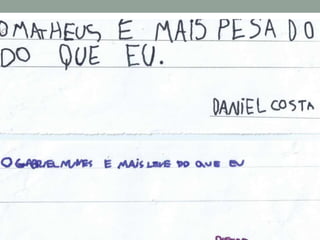 O MATHEUS E MAIS PESADO
DO QUE EU.
DANIEL COSTA
O GABRIEL NUNES E MAIS LEVE DO QUE EU